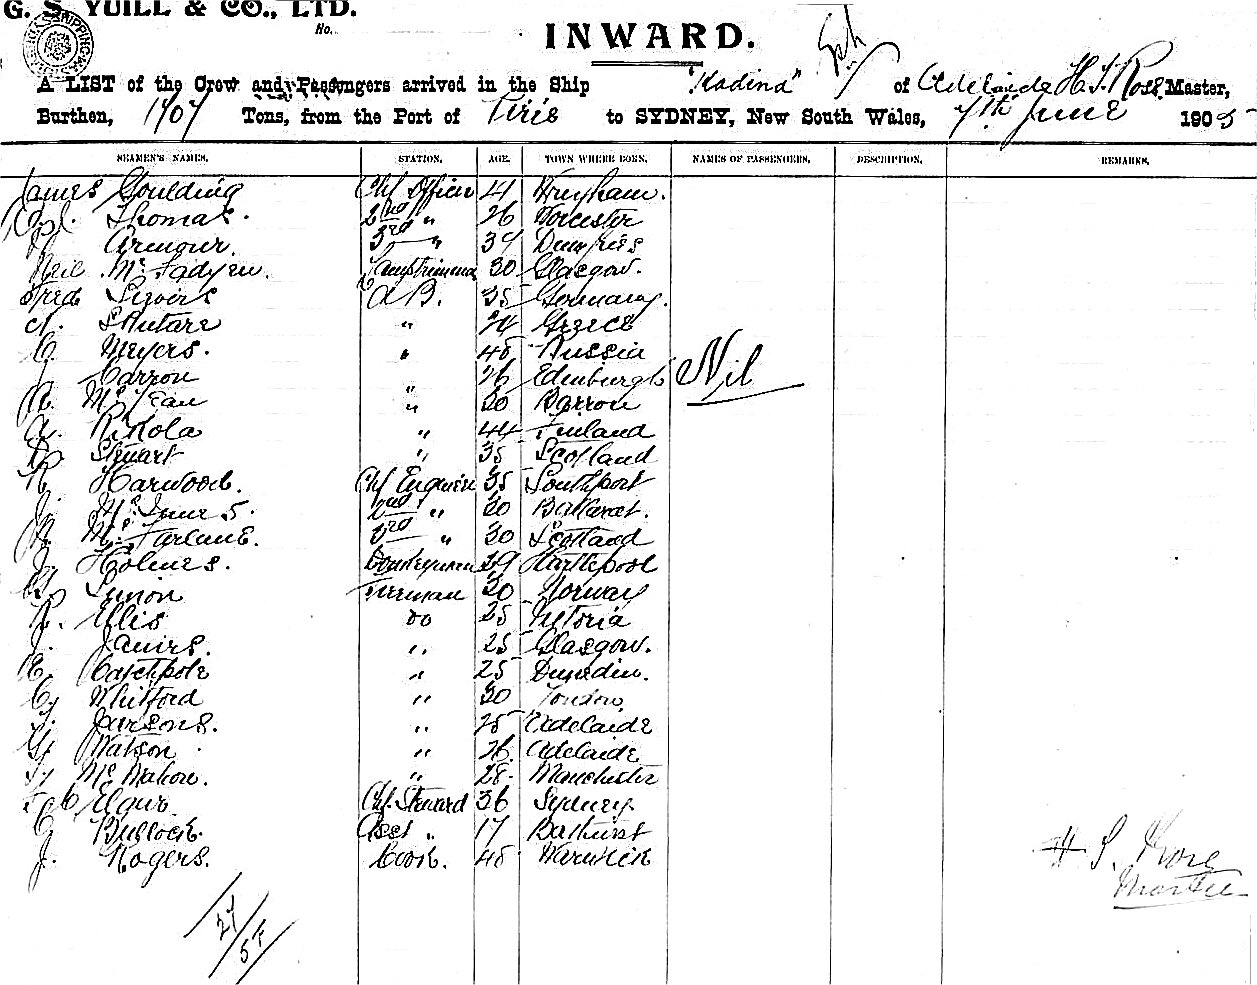 G. S. YUILL & CO., LTD.
No.
INWARD.
A LIST of the Crew and Passengers arrived in the Ship "Kadina" of Adelaide H. S. Rose, Master,
Burthen, 1707 Tons, from the Port of to SYDNEY, New South Wales, 7th June 1905
SEAMEN'S NAMES. STATION. AGE. TOWN WHERE BORN. NAMES OF PASSENGERS. DESCRIPTION. REMARKS.
James Goulding Chf Officer 41
Thomas. 2nd " 26 Worcester
Armour. 3rd " 34 Dumfries
Neil McFadyen. Lamptrimmer 30 Glasgow.
Fred A.B. 35 Germany.
" 24 Greece
C. Meyers. " 48 Russia
Carron " 26 Edinburgh
Nil
" 30 Barrow
A. Rikola " 44 Finland
Stuart " 35 Scotland
Harwood. Chf Engineer 35 Southport
J. 2nd " 30 Ballarat.
McFarlane. 3rd " 30 Scotland
J. Holmes. Donkeyman 29 Hartlepool
Fireman 30 Norway
Ellis do 25 Victoria
J. " 25 Glasgow.
Catchpole " 25 Dunedin.
C. Whitford " 30 London
Parsons. " 25 Adelaide
Watson " 26 Adelaide
McMahon. " 28 Manchester
Chf Steward 36 Sydney
C. Bullock. Asst " 17 Bathurst
J. Rogers. Cook. 48 Warwick
H. S. Rose
Master
27/57